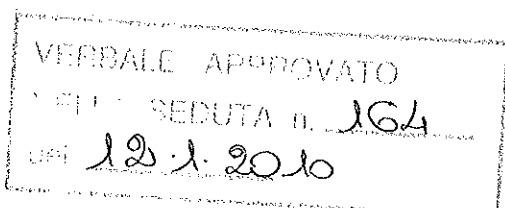 VERBALE APPROVATO
NELLA SEDUTA n. 164
DEL 12.1.2010